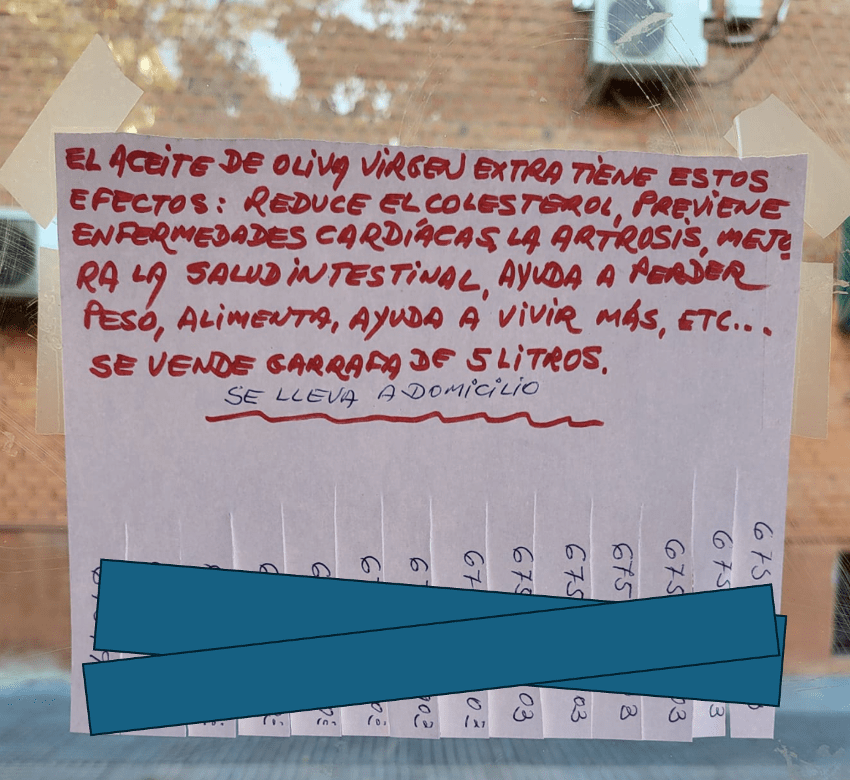 EL ACEITE DE OLIVA VIRGEN EXTRA TIENE ESTOS
EFECTOS: REDUCE EL COLESTEROL, PREVIENE
ENFERMEDADES CARDÍACAS, LA ARTROSIS, MEJO
RA LA SALUD INTESTINAL, AYUDA A PERDER
PESO, ALIMENTA, AYUDA A VIVIR MÁS, ETC...
SE VENDE GARRAFA DE 5 LITROS.
SE LLEVA A DOMICILIO